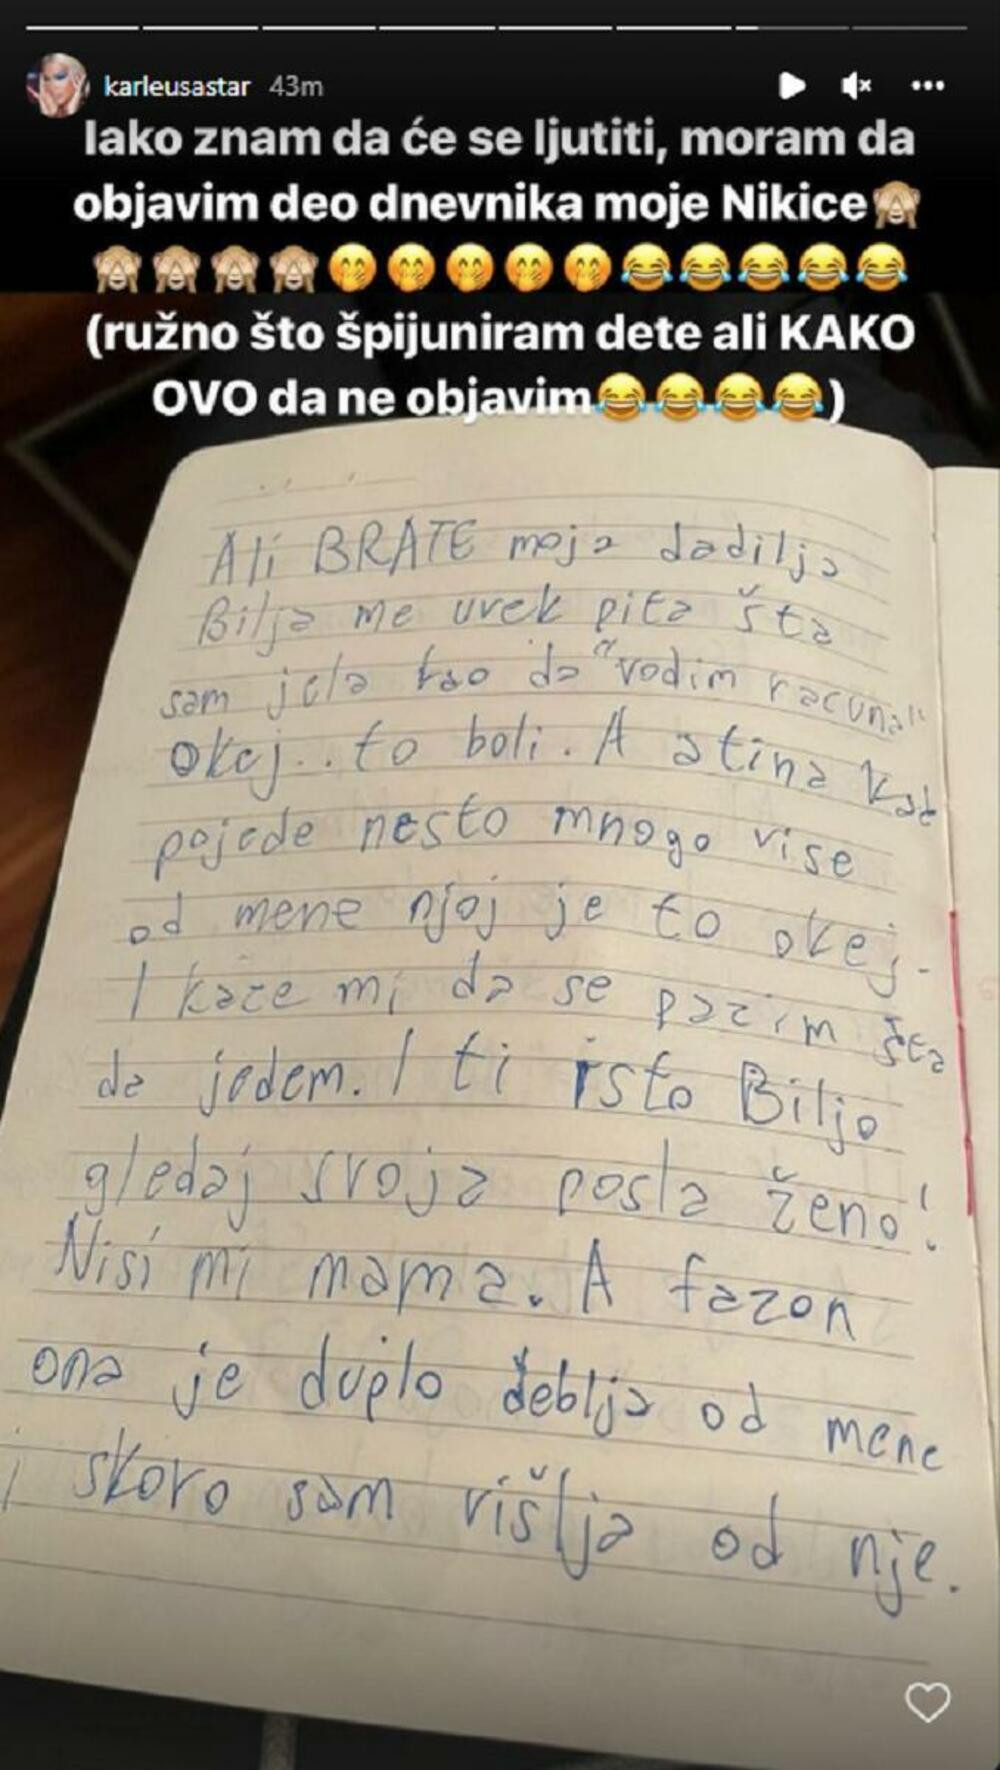 karleusastar 43m
Iako znam da će se ljutiti, moram da
objavim deo dnevnika moje Nikice🙈
🙈🙈🙈🙈🤭🤭🤭🤭🤭😂😂😂😂😂
(ružno što špijuniram dete ali KAKO
OVO da ne objavim😂😂😂😂)
Ali BRATE moja dadilja
Bilja me uvek pita šta
sam jela kao da "vodim racuna"
Okej.. to boli. A atina kad
pojede nesto mnogo vise
od mene njoj je to okej.
I kaže mi da se pazim šta
da jedem. I ti isto Biljo
gledaj svoja posla ženo!
Nisi mi mama. A fazon
ona je duplo deblja od mene
i skoro sam višlja od nje.